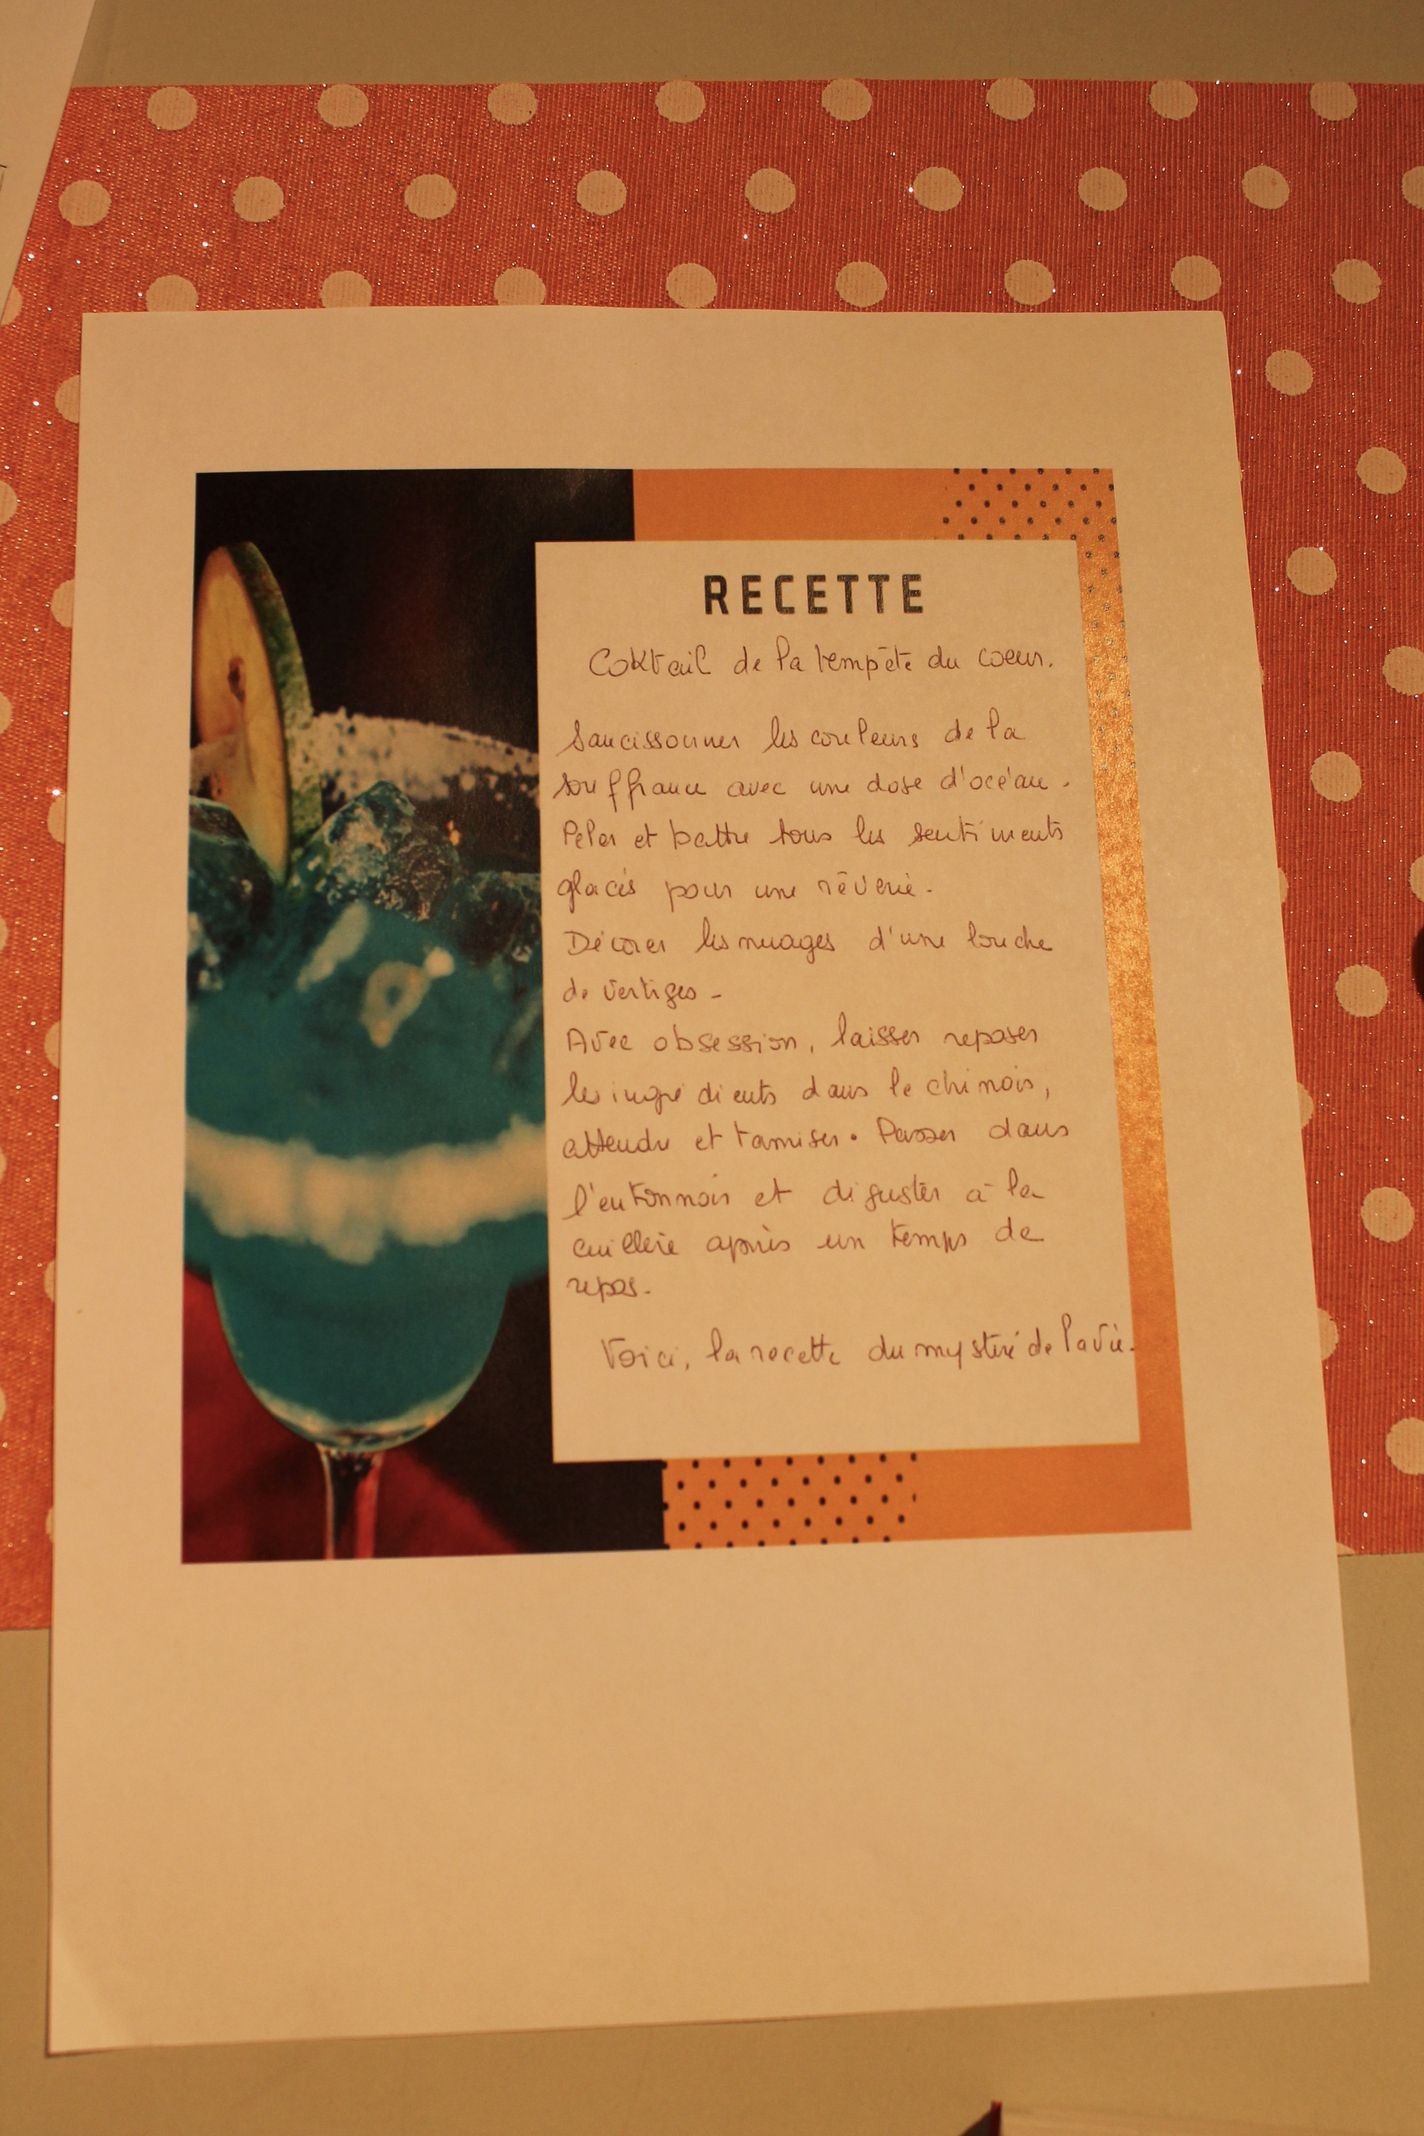 RECETTE
Coktail de la tempête du coeur.
Saucissonner les couleurs de la
souffrance avec une dose d'océan.
Peler et battre tous les sentiments
glacés pour une rêverie.
Décorer les nuages d'une louche
de vertiges.
Avec obsession, laisser reposer
les ingrédients dans le chinois,
attendre et tamiser. Passer dans
l'entonnoir et déguster à la
cuillère après un temps de
repos.
Voici, la recette du mystère de la vie.